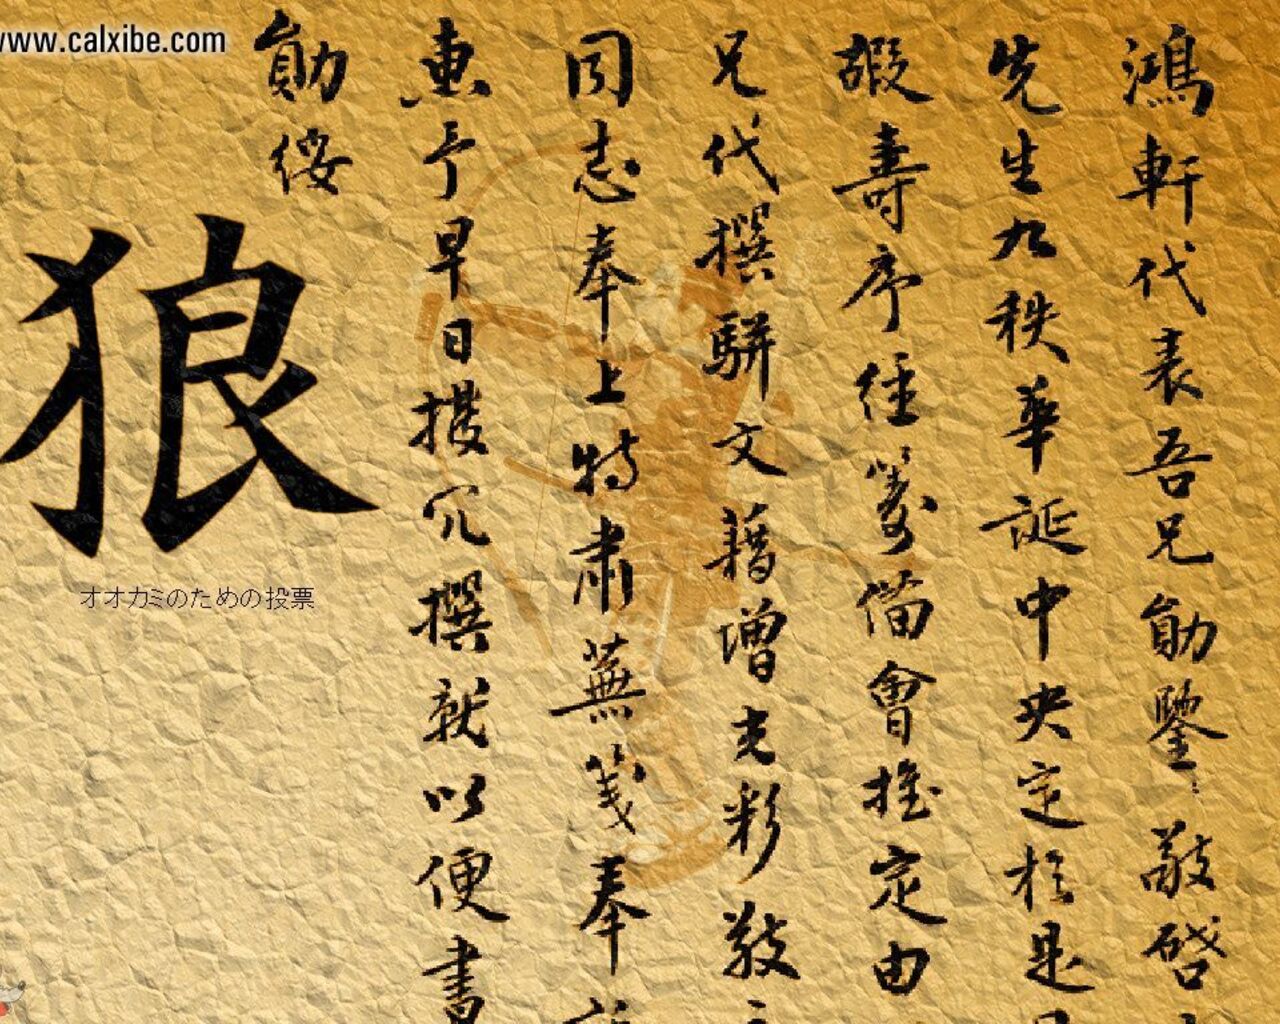 www.calxibe.com
鴻軒代表吾兄勛鑒敬啓
先生九秩華誕中央定於是
嘏壽序經籌備會推定由
兄代撰駢文藉增光彩敬
同志奉上特肅蕪箋奉
惠予早日撥冗撰就以便書
勛綏
狼
オオカミのための投票